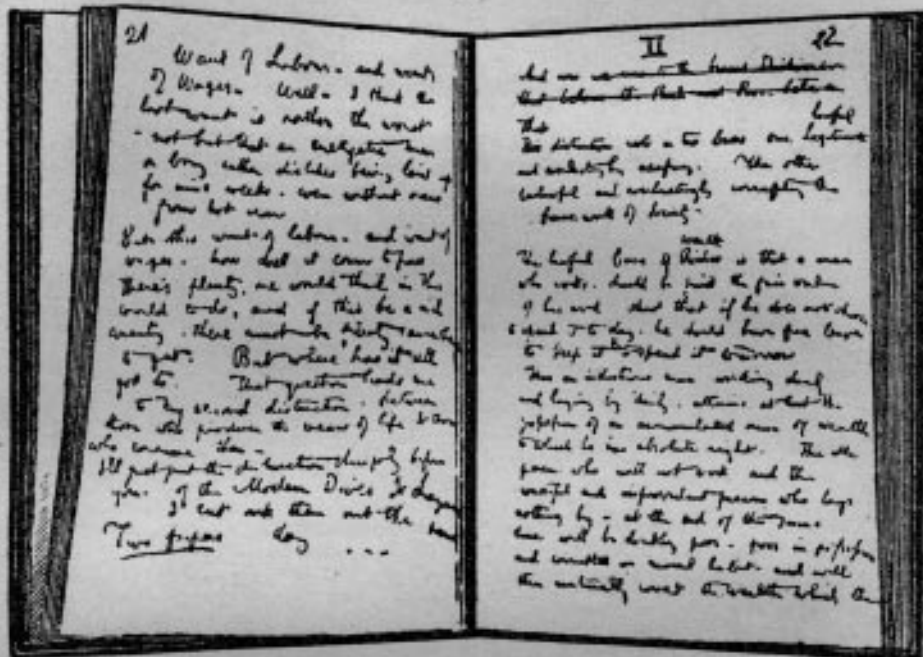 21
Want of Labour - and want
of Wages. Well - I think the
last want is rather the worst
- not but that an energetic man
or boy rather dislikes being laid up
for nine weeks - even without
from hot
But this want of labour - and want of
wages - how does it come to pass
There's plenty, we would think in this
world to do, and if this be a rich
country - there must be plenty
to get. But where has it all
got to. That question leads me
to my second distinction - between
those who produce the means of life &
who consume them -
I'll just put the distinction sharply before
you. Of the Modern Dives &
I cut out them out the same
Two papers day ...
II 22
that
This distinction is two bases one lawful Legitimate
and everlastingly necessary. The other
unlawful and everlastingly corrupting the
frame work of Society -
The lawful base of Riches wealth is that a man
who works - should be paid the fair value
of his work and that if he does not choose
to spend it to day - he should have free leave
to keep it & spend it tomorrow
Thus an industrious man working daily
and laying by daily - attains at last the
possession of an accumulated sum of wealth
to which he has absolute right. The idle
person who will not work and the
wasteful and improvident person who lays
nothing by - at the end of the same
time will be doubly poor - poor in possession
and in moral habit - and will
then naturally covet the wealth which the